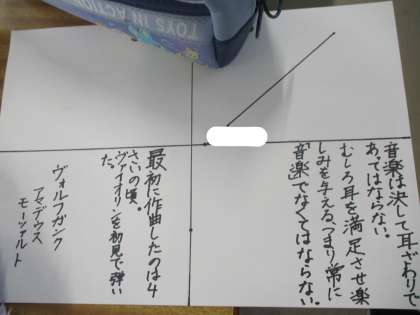 TOYS IN ACTION
音楽は決して耳ざわりで
あってはならない。
むしろ耳を満足させ楽
しみを与える、つまり常に
「音楽でなくてはならない。
最初に作曲したのは4
さいの頃。
ヴァイオリンを初見で弾い
た。
ヴォルフガンク
アマデウス
モーツァルト